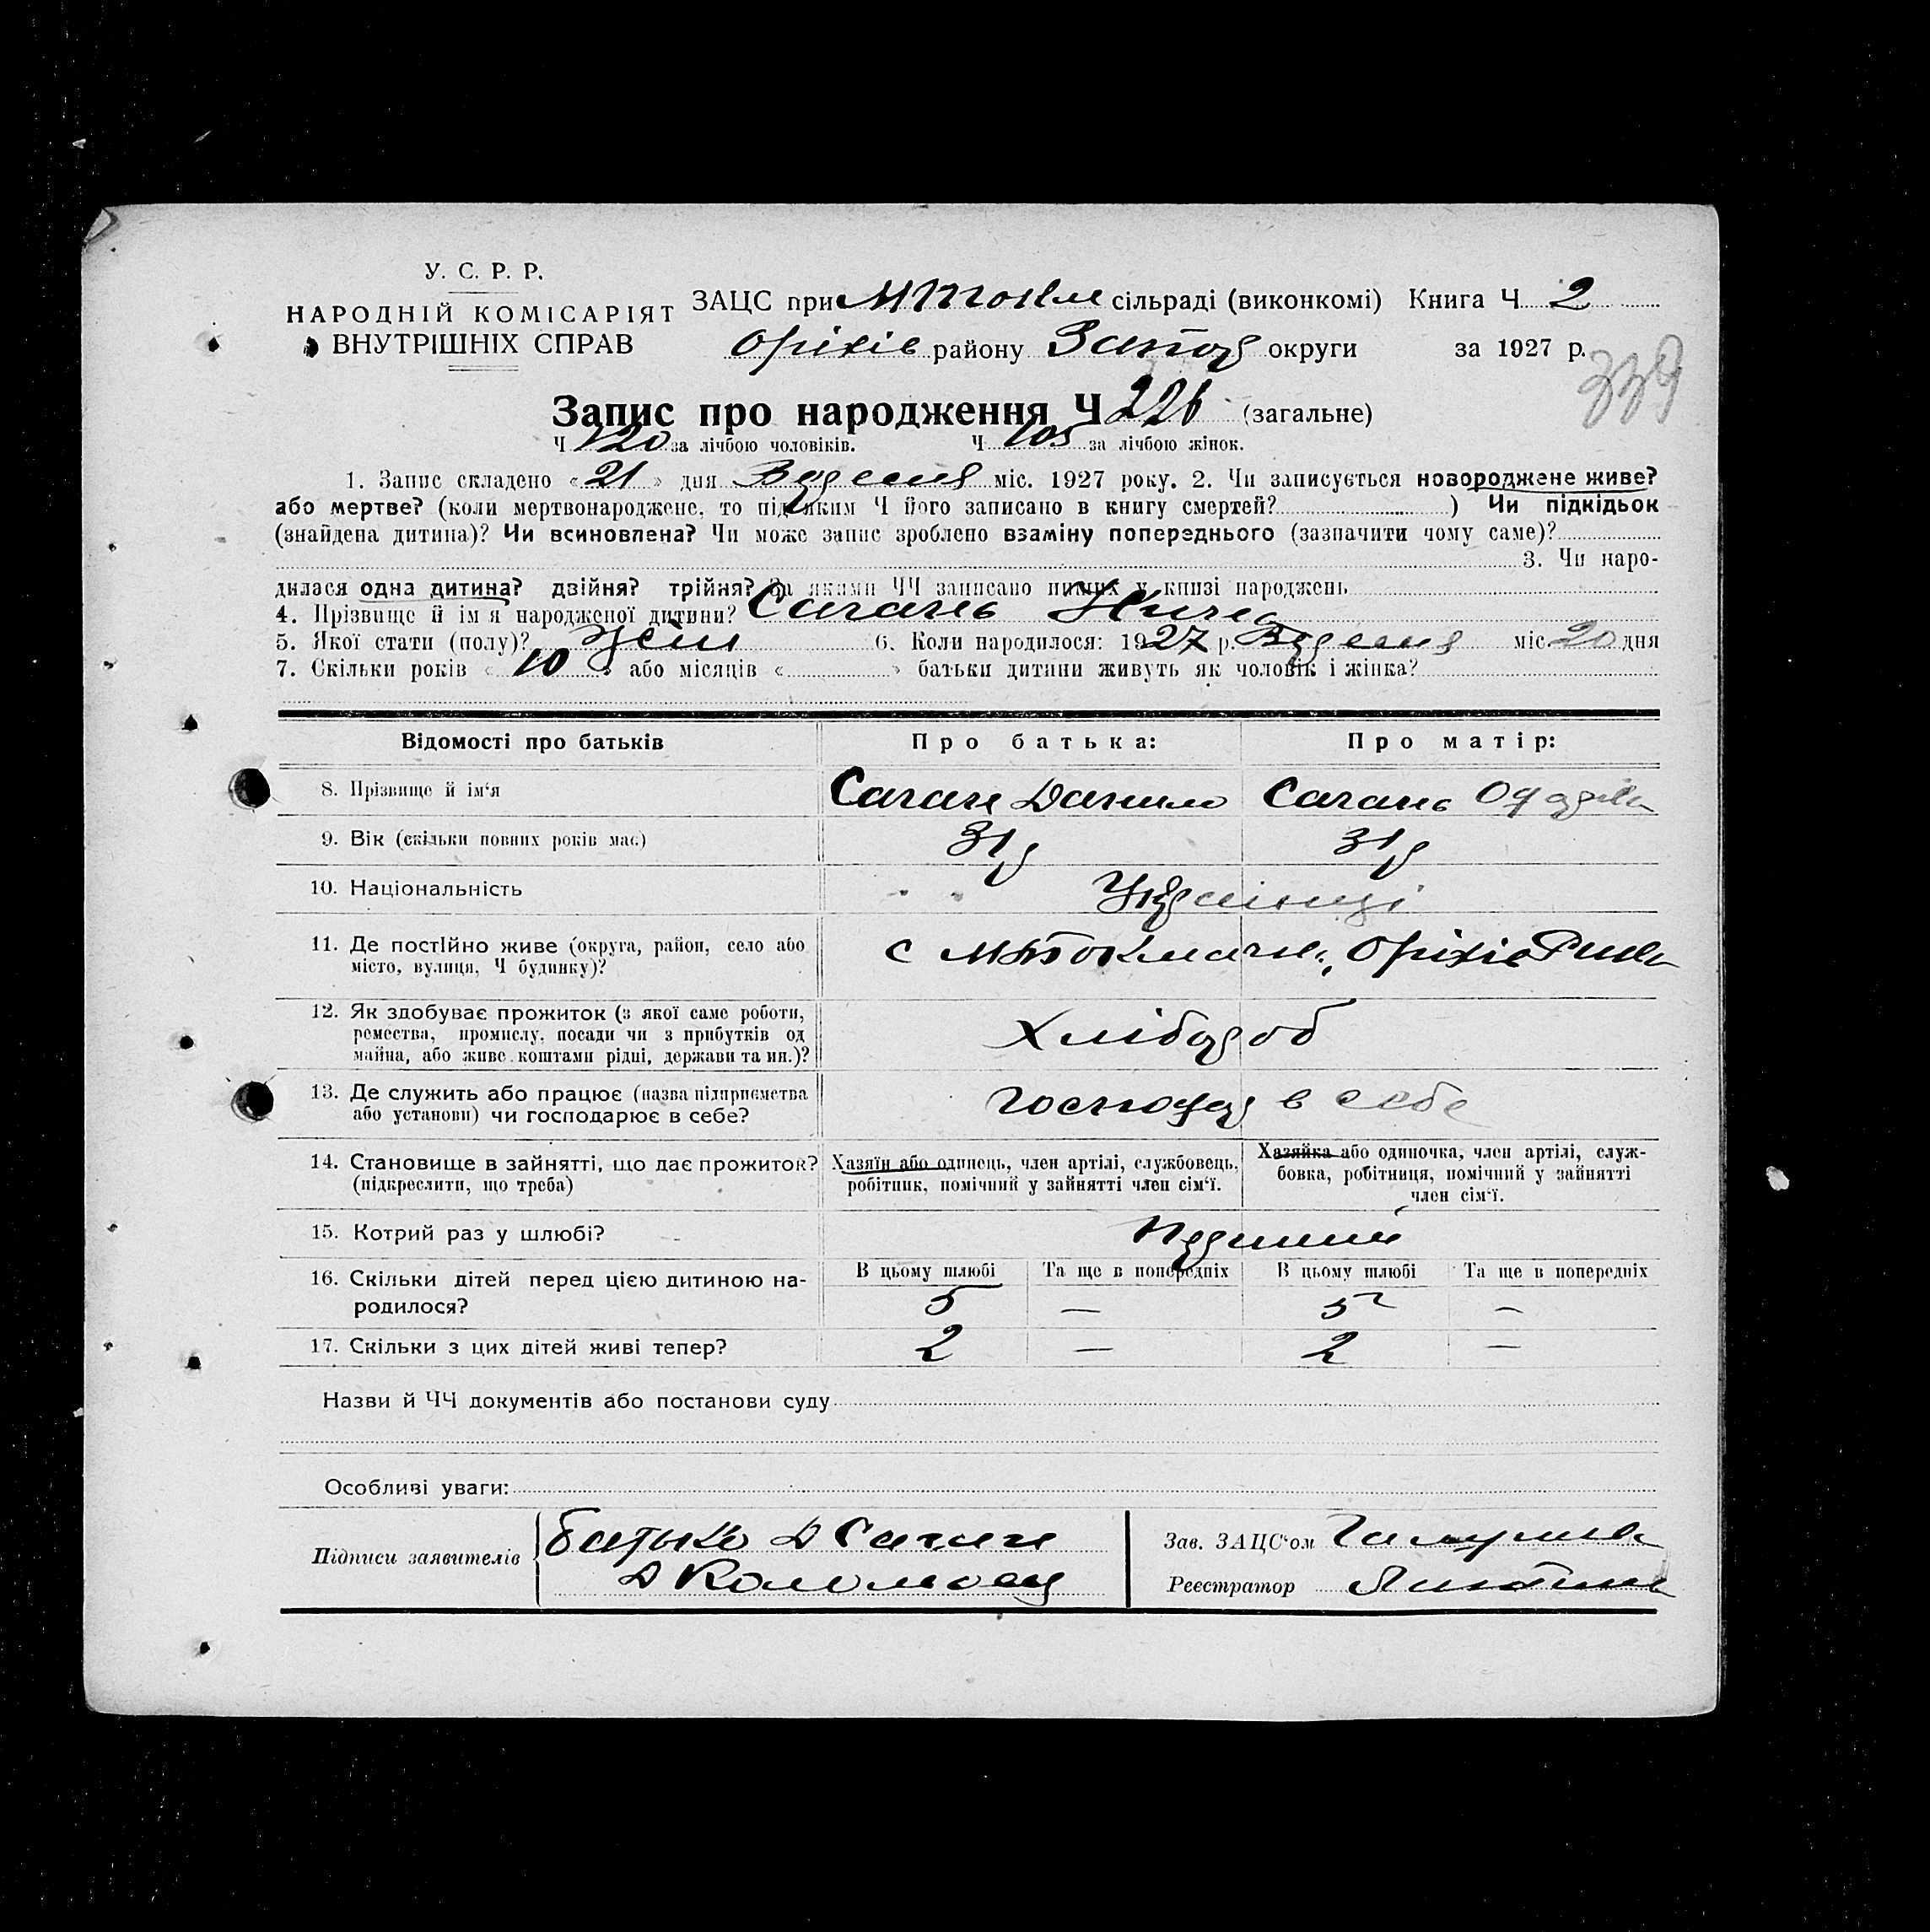 У. С. Р. Р.
НАРОДНІЙ КОМІСАРІЯТ
ВНУТРІШНІХ СПРАВ
ЗАЦС при МТокм сільраді (виконкомі) Книга Ч 2
Оріхів району Запор округи за 1927 р.
339
Запис про народження Ч 226 (загальне)
Ч 120 за лічбою чоловіків. Ч 105 за лічбою жінок.
1. Запис складено «21» дня Вересня міс. 1927 року. 2. Чи записується новороджене живе?
або мертве? (коли мертвонароджене, то під яким Ч його записано в книгу смертей? ) Чи підкідьок
(знайдена дитина)? Чи всиновлена? Чи може запис зроблено взаміну попереднього (зазначити чому саме)?
3. Чи наро-
дилася одна дитина? двійня? трійня? За якими ЧЧ записано инших у книзі народжень
4. Прізвище й ім'я народженої дитини? Сагань
5. Якої стати (полу)? жін 6. Коли народилося: 1927 р. Вересня міс. 20 дня
7. Скільки років «10» або місяців « » батьки дитини живуть як чоловік і жінка?
Відомості про батьків Про батька: Про матір:
8. Прізвище й ім'я Саган Данило Сагань
9. Вік (скільки повних років має) 31 р 31 р
10. Національність Українці
11. Де постійно живе (округа, район, село або с МТокмачк, Оріхів Рай
місто, вулиця, Ч будинку)?
12. Як здобуває прожиток (з якої саме роботи, Хлібороб
ремества, промислу, посади чи з прибутків од
майна, або живе коштами рідні, держави та ин.)?
13. Де служить або працює (назва підприємства господар в себе
або установи) чи господарює в себе?
14. Становище в зайнятті, що дає прожиток? Хазяїн або одинець, член артілі, службовець, Хазяйка або одиночка, член артілі, служ-
(підкреслити, що треба) робітник, помічний у зайнятті член сім'ї. бовка, робітниця, помічний у зайнятті
член сім'ї.
15. Котрий раз у шлюбі? Перший
16. Скільки дітей перед цією дитиною на- В цьому шлюбі Та ще в попередніх В цьому шлюбі Та ще в попередніх
родилося? 5 — 5 —
17. Скільки з цих дітей живі тепер? 2 — 2 —
Назви й ЧЧ документів або постанови суду
Особливі уваги:
Підписи заявителів батько Д Саган
Д Коломоец
Зав. ЗАЦС'ом
Реєстратор